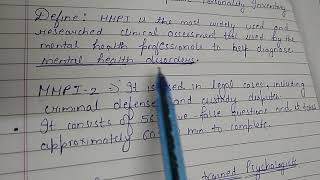 Personality Inventory
Define:- MMPI is the most widely used and
researched clinical assessment tool used by the
mental health professionals to help diagnose
mental health disorders.
MMPI-2 => It is used in legal cases, including
criminal defense and custody disputes.
It consists of 56 true-false question and it takes
approximately 60 min to complete.
trained Psychologists